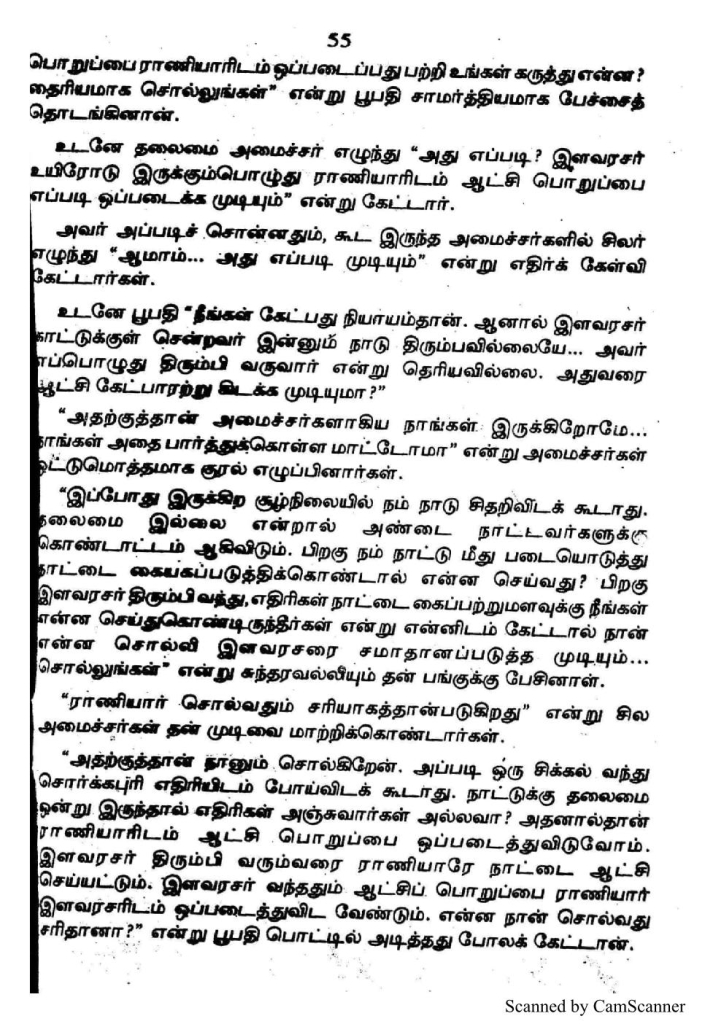 55
பொறுப்பை ராணியாரிடம் ஒப்படைப்பது பற்றி உங்கள் கருத்து என்ன?
தைரியமாக சொல்லுங்கள்” என்று பூபதி சாமர்த்தியமாக பேச்சைத்
தொடங்கினான்.
உடனே தலைமை அமைச்சர் எழுந்து “அது எப்படி? இளவரசர்
உயிரோடு இருக்கும்பொழுது ராணியாரிடம் ஆட்சி பொறுப்பை
எப்படி ஒப்படைக்க முடியும்” என்று கேட்டார்.
அவர் அப்படிச் சொன்னதும், கூட இருந்த அமைச்சர்களில் சிலர்
எழுந்து “ஆமாம்... அது எப்படி முடியும்” என்று எதிர்க் கேள்வி
கேட்டார்கள்.
உடனே பூபதி “நீங்கள் கேட்பது நியாயம்தான். ஆனால் இளவரசர்
காட்டுக்குள் சென்றவர் இன்னும் நாடு திரும்பவில்லையே... அவர்
எப்பொழுது திரும்பி வருவார் என்று தெரியவில்லை. அதுவரை
ஆட்சி கேட்பாரற்று கிடக்க முடியுமா?”
“அதற்குத்தான் அமைச்சர்களாகிய நாங்கள் இருக்கிறோமே...
நாங்கள் அதை பார்த்துக்கொள்ள மாட்டோமா” என்று அமைச்சர்கள்
ஒட்டுமொத்தமாக குரல் எழுப்பினார்கள்.
“இப்போது இருக்கிற சூழ்நிலையில் நம் நாடு சிதறிவிடக் கூடாது.
தலைமை இல்லை என்றால் அண்டை நாட்டவர்களுக்கு
கொண்டாட்டம் ஆகிவிடும். பிறகு நம் நாட்டு மீது படையொடுத்து
நாட்டை கையகப்படுத்திக்கொண்டால் என்ன செய்வது? பிறகு
இளவரசர் திரும்பி வந்து, எதிரிகள் நாட்டை கைப்பற்றுமளவுக்கு நீங்கள்
என்ன செய்துகொண்டிருந்தீர்கள் என்று என்னிடம் கேட்டால் நான்
என்ன சொல்லி இளவரசரை சமாதானப்படுத்த முடியும்...
சொல்லுங்கள்” என்று சுந்தரவல்லியும் தன் பங்குக்கு பேசினாள்.
“ராணியார் சொல்வதும் சரியாகத்தான்படுகிறது” என்று சில
அமைச்சர்கள் தன் முடிவை மாற்றிக்கொண்டார்கள்.
“அதற்குத்தான் நானும் சொல்கிறேன். அப்படி ஒரு சிக்கல் வந்து
சொர்க்கபுரி எதிரியிடம் போய்விடக் கூடாது. நாட்டுக்கு தலைமை
ஒன்று இருந்தால் எதிரிகள் அஞ்சுவார்கள் அல்லவா? அதனால்தான்
ராணியாரிடம் ஆட்சி பொறுப்பை ஒப்படைத்துவிடுவோம்.
இளவரசர் திரும்பி வரும்வரை ராணியாரே நாட்டை ஆட்சி
செய்யட்டும். இளவரசர் வந்ததும் ஆட்சிப் பொறுப்பை ராணியார்
இளவரசரிடம் ஒப்படைத்துவிட வேண்டும். என்ன நான் சொல்வது
சரிதானா?” என்று பூபதி பொட்டில் அடித்தது போலக் கேட்டான்.
Scanned by CamScanner